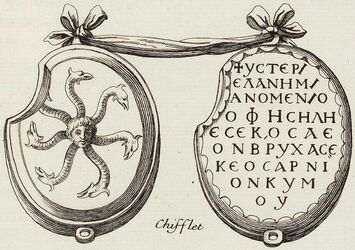 ΥΣΤΕΡΙ
ΕΛΑΝΗΜΙ
ΑΝΟΜΕΝΙΟ
ΟΦΗϹΗΛΗ
ΕϹΕΚΟϹΑΕ
ΟΝΒΡΥΧΑϹΕ
ΚΕΟϹΑΡΝΙ
ΟΝΚΥΜ
ΟΥ
Chifflet